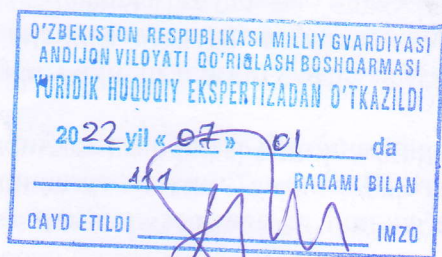 O'ZBEKISTON RESPUBLIKASI MILLIY GVARDIYASI
ANDIJON VILOYATI QO'RIQLASH BOSHQARMASI
YURIDIK HUQUQIY EKSPERTIZADAN O'TKAZILDI
2022 yil « 07 » 01 da
111 RAQAMI BILAN
QAYD ETILDI IMZO